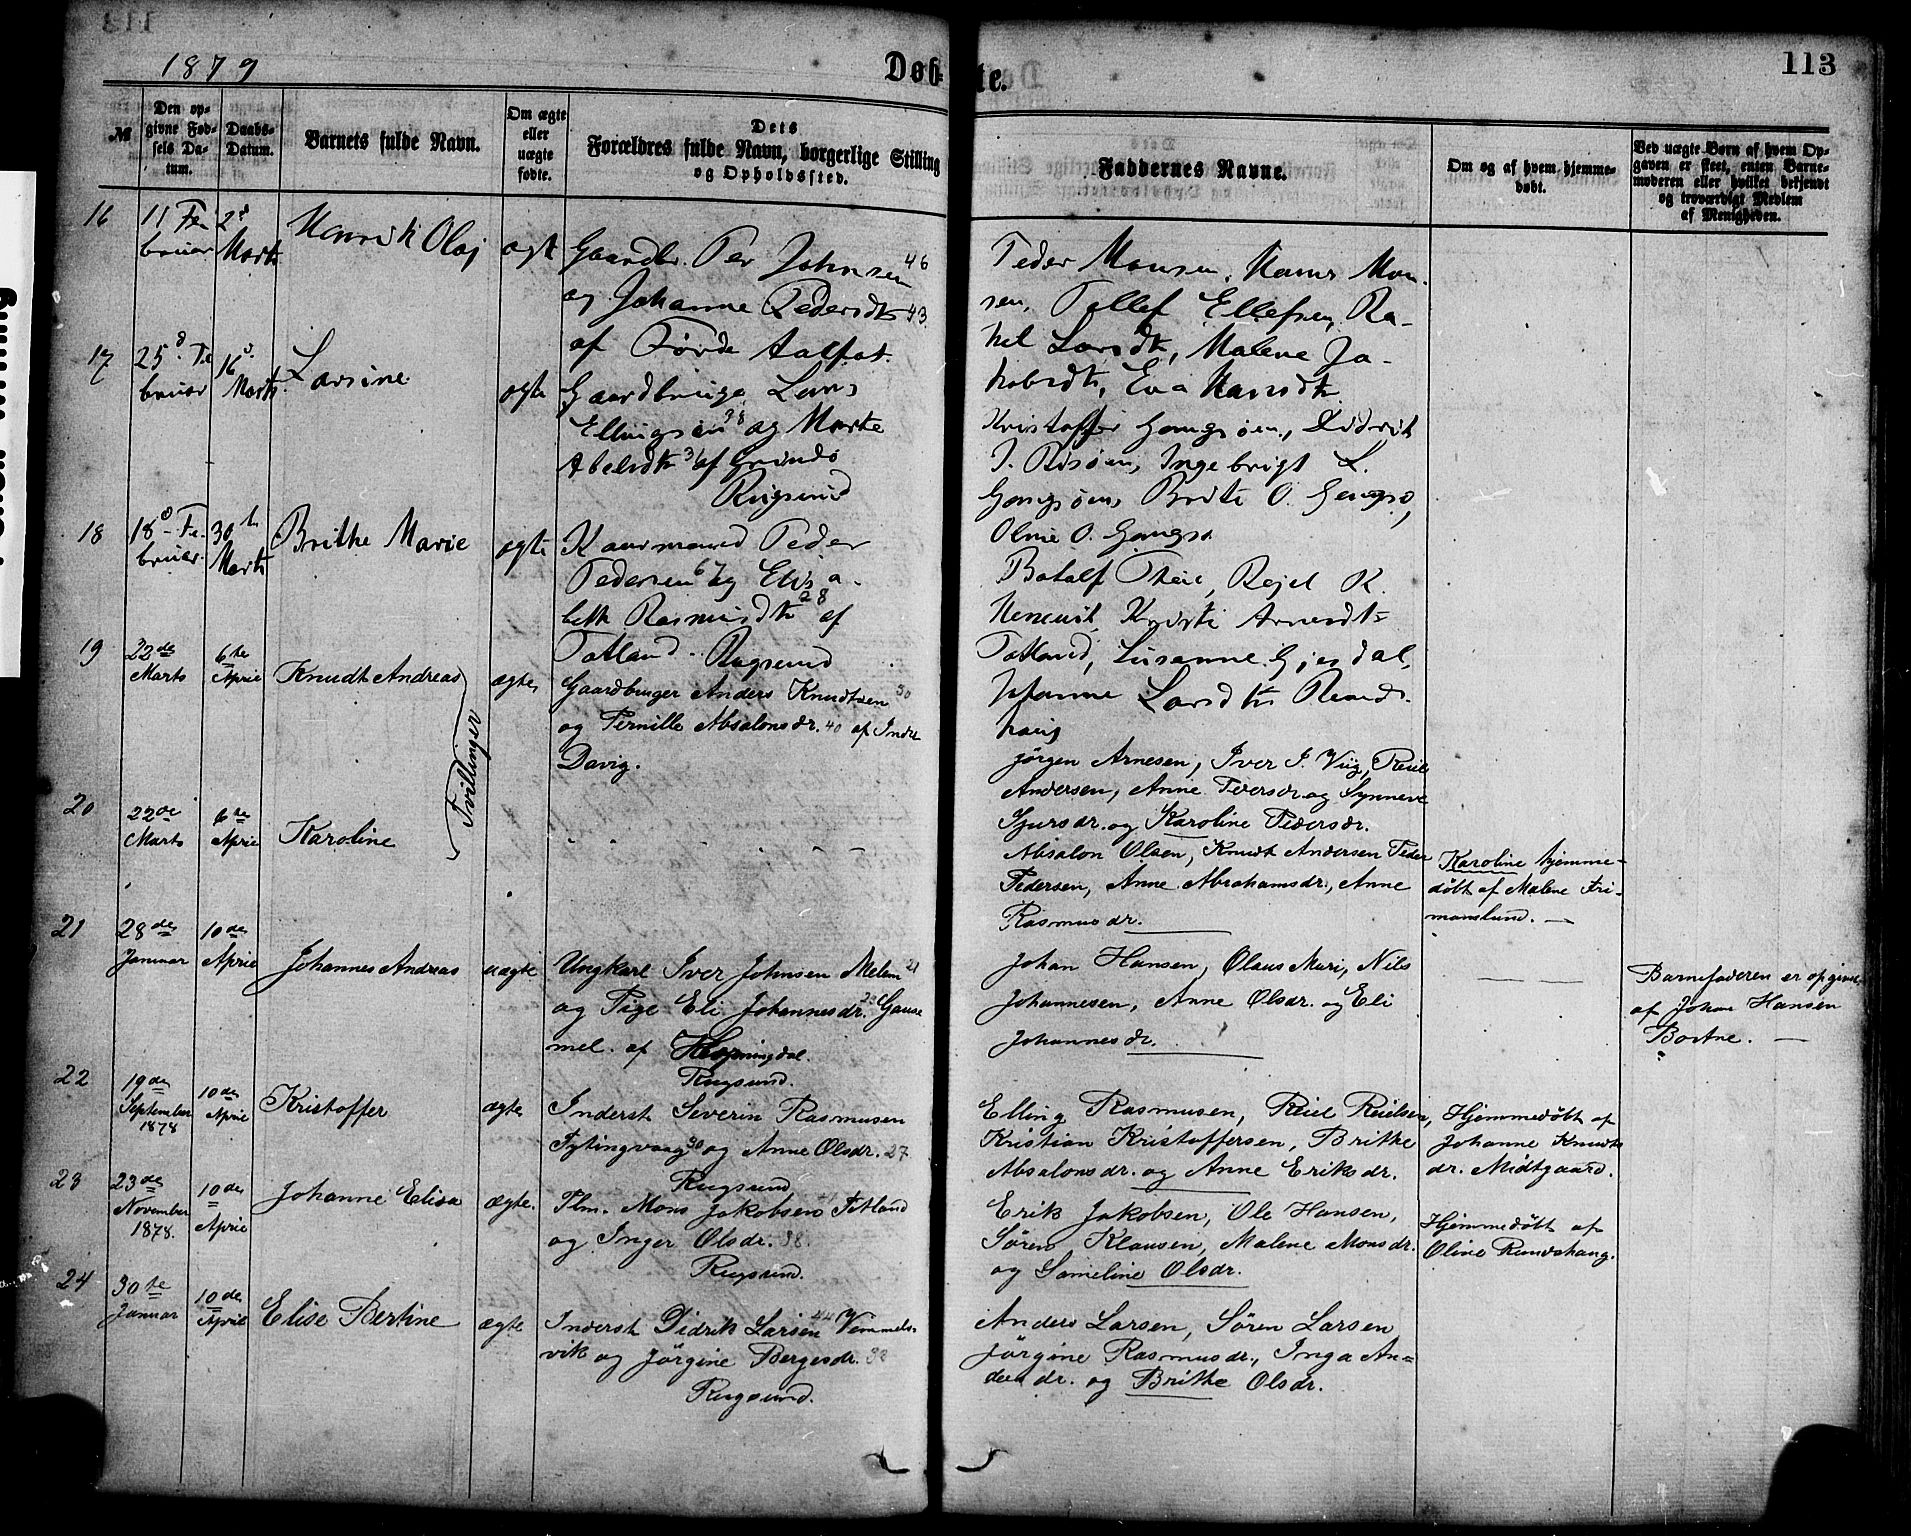 1879
Døb-
te.
113
№
Den op-
givne Fød-
sels Da-
tum.
Daabs-
Datum.
Barnets fulde Navn.
Om ægte
eller
uægte
fødte.
Dets
Forældres fulde Navn, borgerlige Stilling
og Opholdssted.
Faddernes Navne.
Om og af hvem hjemme-
døbt.
Ved uægte Børn af hvem Op-
gaven er skeet, enten Barne-
moderen eller hvilket bekjendt
og troværdigt Medlem
af Menigheden.
16
11 Fe
bruar
2d
Marts
Henrik Olaj
ægte
Gaardbr. Per Johnsen 46
og Johanne Pedersdtr 43.
af Förde Aalfot.
Peder Monsen, Hans Mon
sen, Tollef Ellefsen, Ra-
kel Larsdtr, Malene Ja-
kobsdtr, Eva Hansdtr
17
25d Fe
bruar
16d
Marts
Larsine
ægte
Gaardbruge Lars
Ellingsen 38 og Marte
Abelsdtr 31 af Grindø
Rugsund
Kristoffer Gangsøen, Didrik
J. Risøen, Ingebrigt L.
Gangsøen, Brite O. Gangsø,
Oline O. Gangsø
18
18d Fe-
bruar.
30te
Marts
Brithe Marie
ægte
Kaarmand Peder
Pedersen 67 og Elisa-
beth Rasmusdtr 28 af
Totland Rugsund
Botolf Rejel K.
Kristi Arnesdtr
Totland, Susanne Gjesdal,
Larsdtr
19
22de
Marts
6te
April
Knudt Andreas
Tvillinger
ægte
Gaardbruger Anders Knudtsen 30
og Pernille Absalonsdr. 40 af Indre
Davig.
Jørgen Arnesen, Iver J. Viig, Reiel
Andersen, Anne Pedersdr. og Synneve
Sjursdr. og Karoline Pedersdr.
20
22de
Marts
6te
April
Karoline
Absalon Olsen, Knudt Andersen Peder
Pedersen, Anne Abrahamsdr., Anne
Rasmusdr.
Karoline hjemme-
døbt af Malene Fri-
manslund. —
21
28de
Januar
10de
April
Johannes Andreas
uægte
Ungkarl Iver Johnsen Melem 21
og Pige Eli Johannesdr. 23 Gause
mel. af Hopningdal.
Rugsund.
Johan Hansen, Olaus Muri, Nils
Johannesen, Anne Olsdr. og Eli
Johannesdr.
Barnefaderen er opgivet
af Johan Hansen
Bortne. —
22
19de
September
1878
10de
April
Kristoffer
ægte
Inderst Severin Rasmusen
Tytingvaag 30 og Anne Olsdr. 27
Rugsund
Elling Rasmusen, Reiel Reielsen,
Kristian Kristoffersen, Brithe
Absalonsdr. og Anne Eriksdr.
Hjemmedøbt af
Johanne Knudts
dr. Midtgaard.
23
23de
November
1878.
10de
April
Johanne Elisa
ægte.
Plm. Mons Jakobsen Totland
og Inger Olsdr. 38.
Rugsund.
Erik Jakobsen, Ole Hansen,
Søren Klausen, Malene Monsdr.
og Sameline Olsdr.
Hjemmedøbt af
Oline Rundshaug.
24
30te
Januar
10de
April
Elise Bertine
ægte
Inderst Didrik Larsen 44 Vemmels-
vik og Jørgine Bergesdr. 38
Rugsund.
Anders Larsen, Søren Larsen
Jørgine Rasmusdr., Inga An-
dersdr. og Brithe Olsdr.